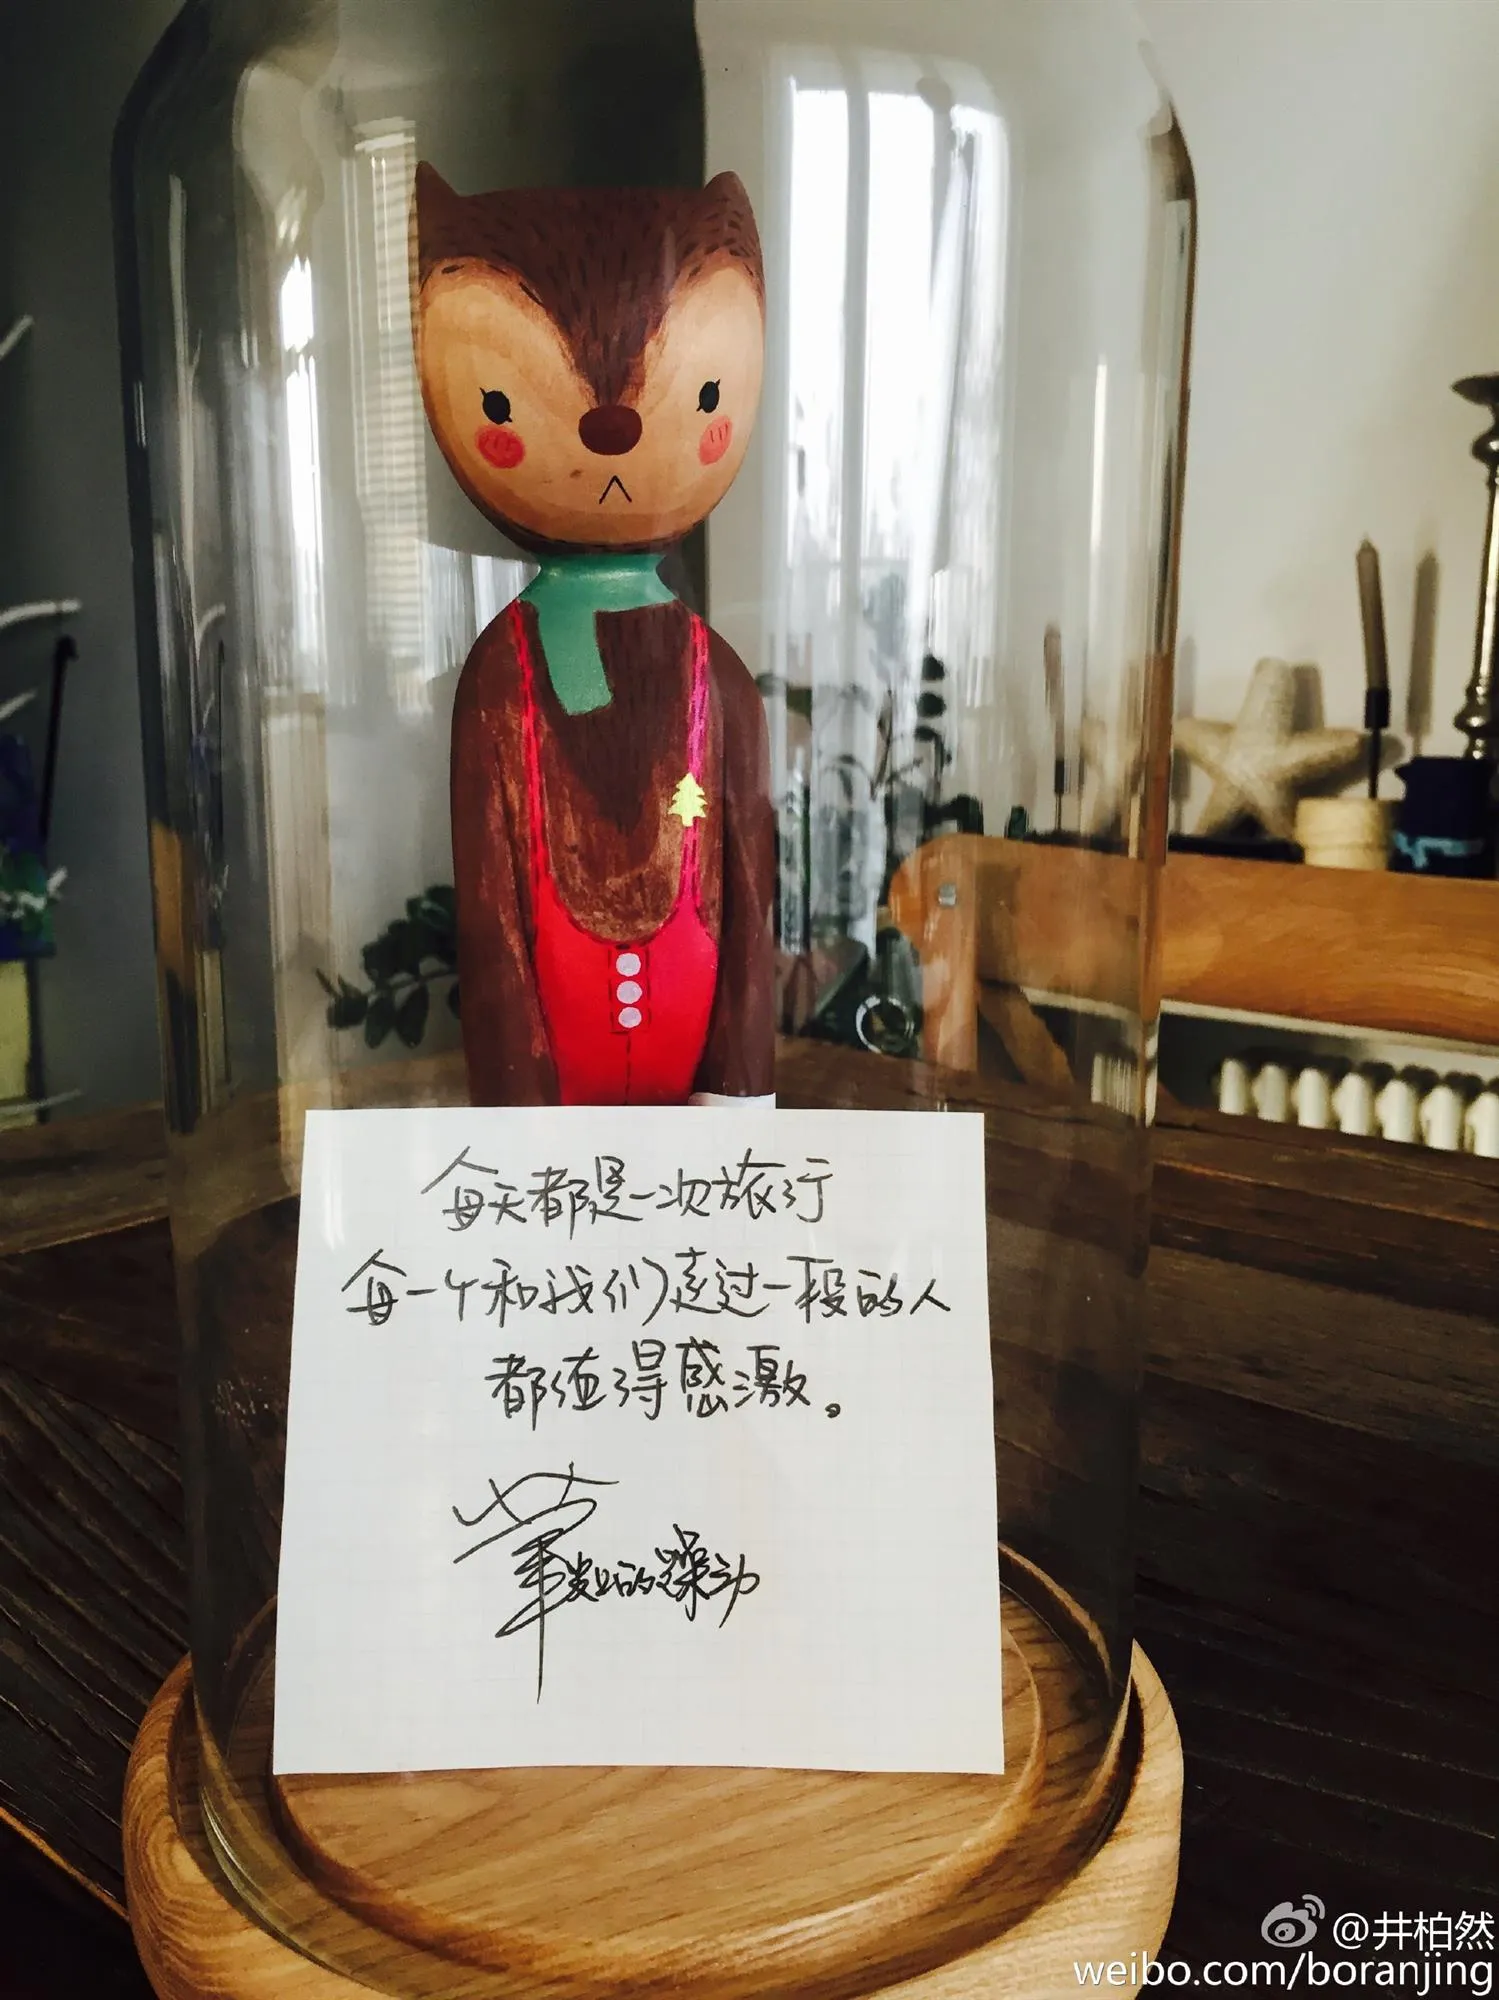 每天都是一次旅行
每一个和我们走过一段的人
都值得感激。
的躁动
@井柏然
weibo.com/boranjing